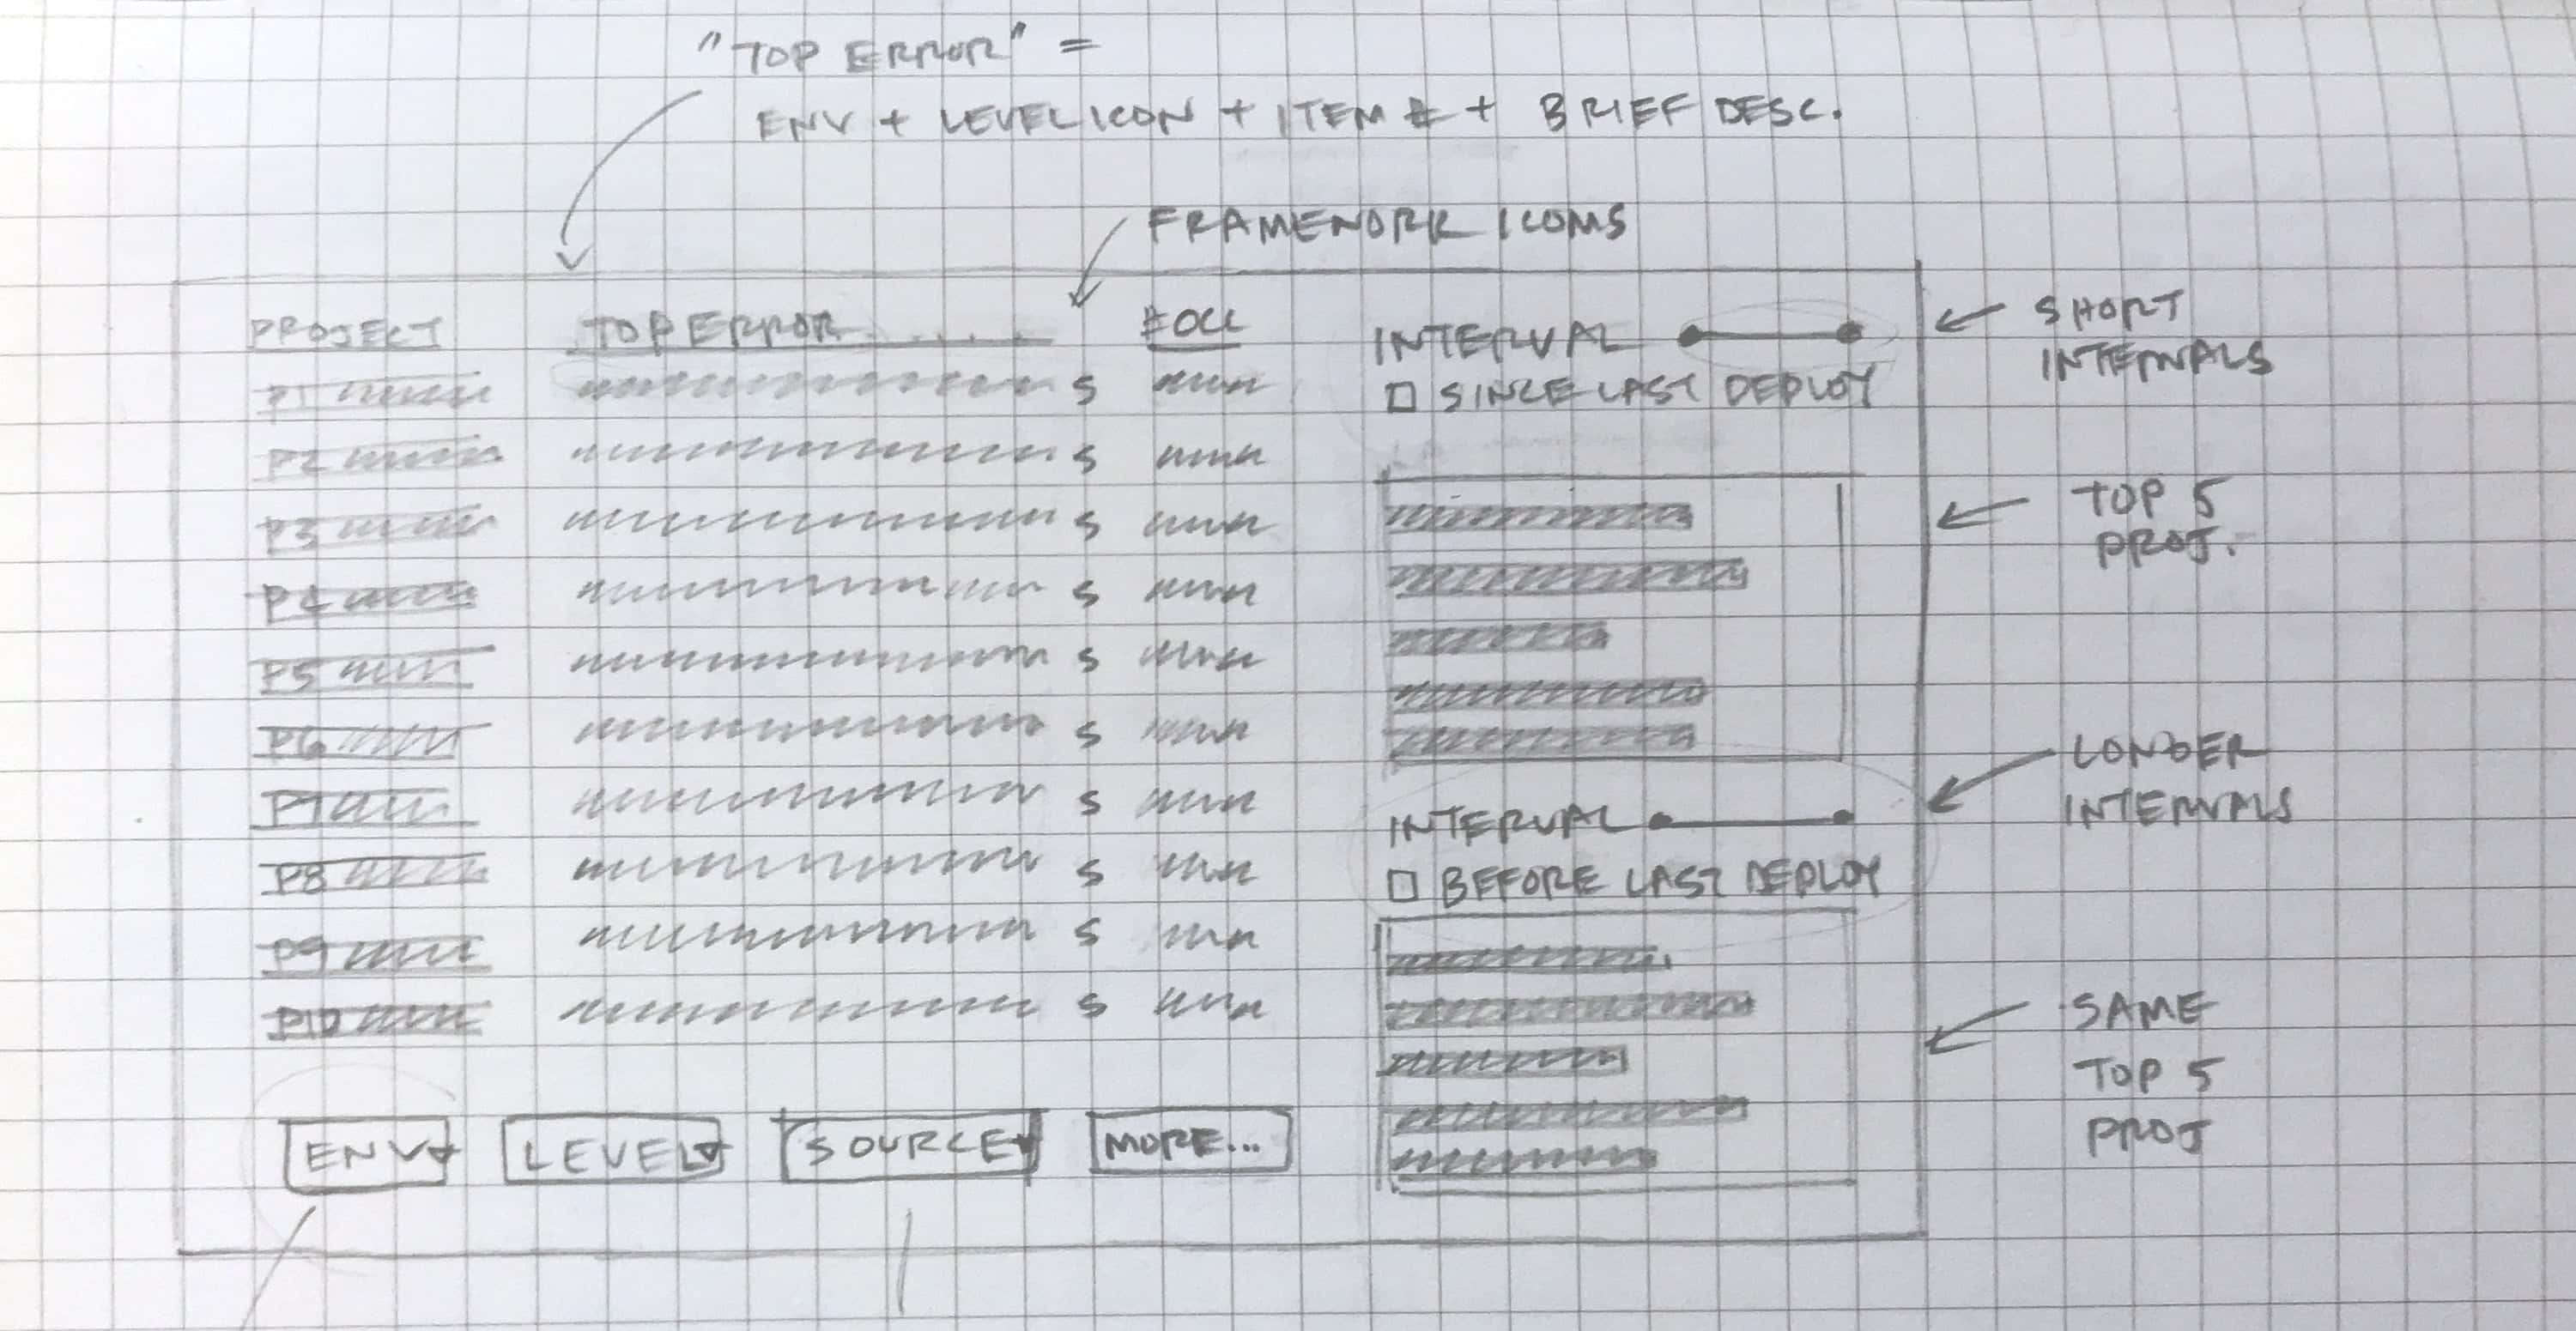 "TOP ERROR" =
ENV + LEVEL ICON + ITEM # + BRIEF DESC.
FRAMEWORK ICONS
PROJECT TOP ERROR.... # OCC
INTERVAL
SINCE LAST DEPLOY
SHORT
INTERVALS
P1 S
P2 S
P3 S
P4 S
P5 S
P6 S
P7 S
P8 S
P9 S
P10 S
TOP 5
PROJ.
INTERVAL
BEFORE LAST DEPLOY
LONGER
INTERVALS
SAME
TOP 5
PROJ
ENV LEVEL SOURCE MORE...